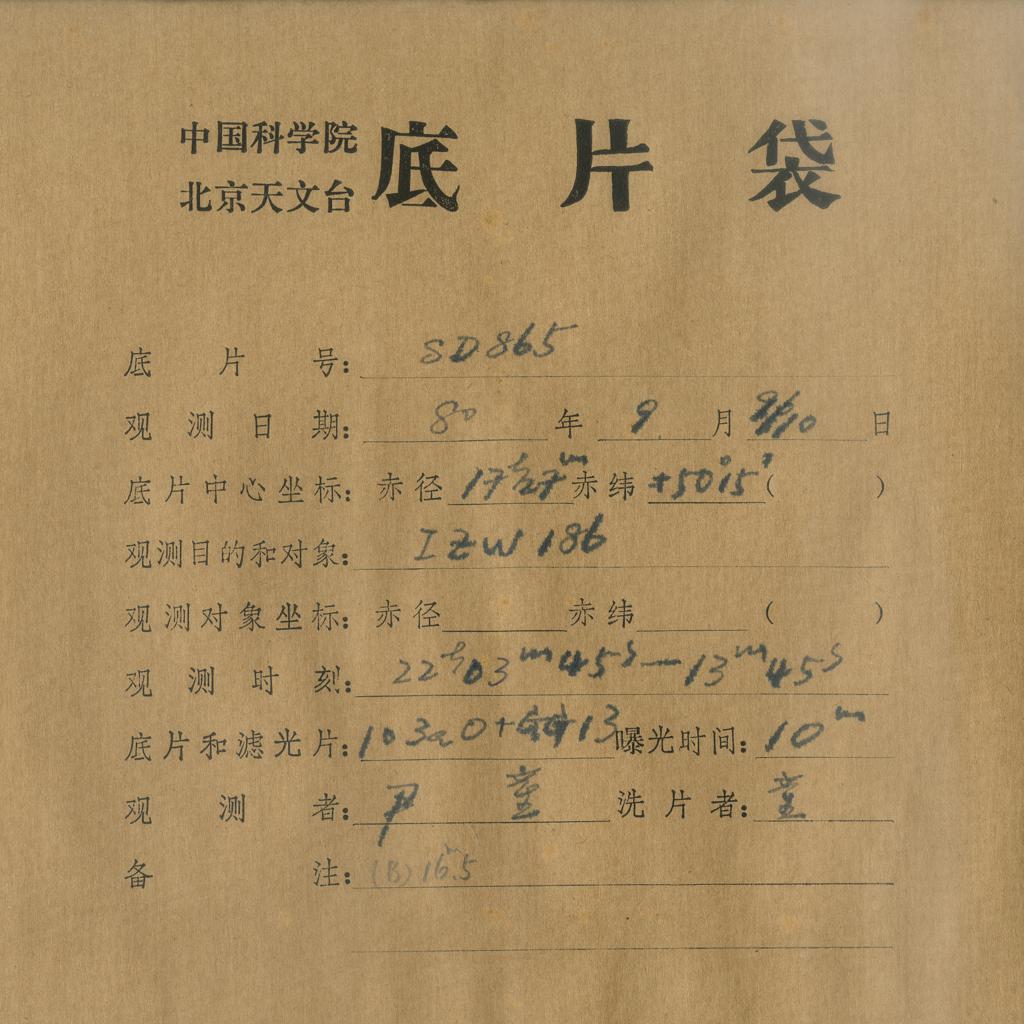 中国科学院
北京天文台
底片袋
底片号: SD865
观测日期: 80 年 9 月 9/10 日
底片中心坐标: 赤径 17h27m 赤纬 +50°15′ ( )
观测目的和对象: I ZW 186
观测对象坐标: 赤径 赤纬 ( )
观测时刻: 22h03m45s—13m45s
底片和滤光片: 103aO+GG13 曝光时间: 10m
观测者: 尹 童 洗片者: 童
备注: (B) 16m.5